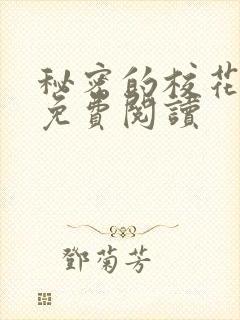 秘密的校花
免費閱讀
鄧菊芳